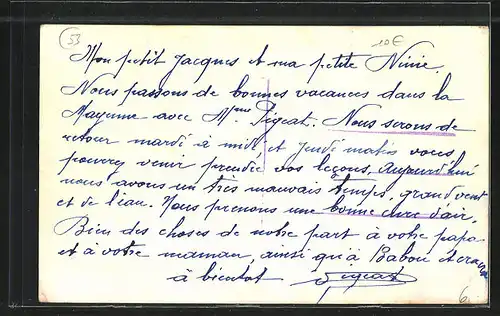 53
10€
Mon petit Jacques et ma petite Ninie.
Nous passons de bonnes vacances dans la
Mayenne avec Mme Pigeat. Nous serons de
retour mardi à midi et jeudi matin vous
pourrez venir prendre vos leçons. Aujourd'hui
nous avons un très mauvais temps, grand vent
et de l'eau. Nous prenons une bonne cure d'air.
Bien des choses de notre part à votre papa
et à votre maman, ainsi qu'à Babou
à bientôt Pigeat
6